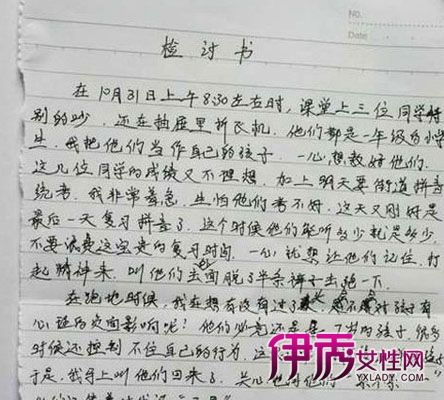 NO.
Date
检讨书
在10月31日上午8:30左右时，课堂上三位同学特
别的吵，还在抽屉里折飞机，他们都是一年级的小学
生，我把他们当作自己的孩子，一心想教好他们，
这几位同学的成绩又不理想，加上明天要街道拼音
统考，我非常着急，生怕他们考不好，这天又刚好是
最后一天复习拼音了，这个时候他们能听多少就是多少，
不要浪费这宝贵的复习时间，一心就想让他们记住，打
起精神来，叫他们去外面脱了半条裤子去跑一下，
在跑地时候，我在想有没有过了头，对孩子有
心理的负面影响呢！他们必竟还是7岁的孩子，很多
时候还控制不住自己的行为，这
于是，我马上叫他们回来了，关心
伊秀女性网
YXLADY.COM